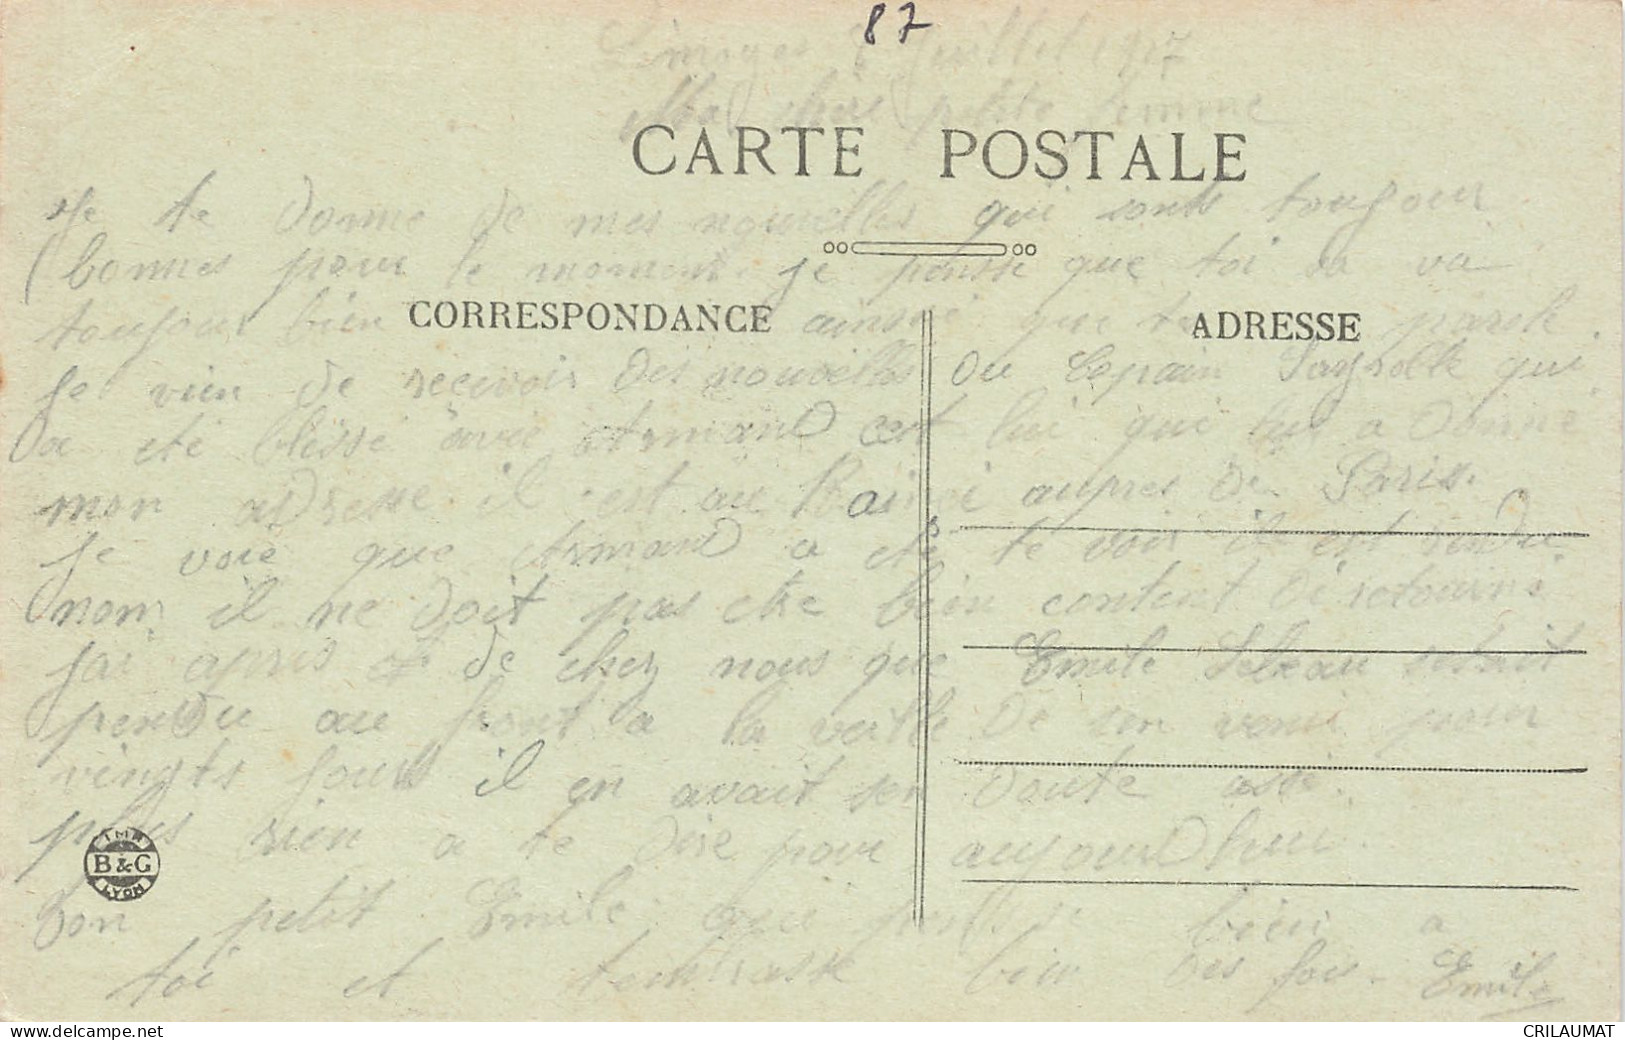 87
Limoges 8 Juillet 1917
Ma chère petite femme
CARTE POSTALE
Je te donne de mes nouvelles qui sonts toujour
bonnes pour le moment je pense que toi sa va
toujour bien ainsi que ta
CORRESPONDANCE
ADRESSE
Je vien de recevoir des nouvelles du Copain qui
a été blessé avec Armand cest lui qui lui a donné
mon adresse il est au Rainci aupres de Paris.
Je voie que Armand a été te voir il est rendu
non il ne doit pas etre bien content de retourné
jai apris de chez nous que Emile Lebeau setait
pendu au front a la veille de sen venir pour
vingts jours il en avait sen doute assé.
plus rien a te dire pour aujourdhui.
IMP
B&G
LYON
Ton petit Emile qui pense bien a
toi et tembrasse bien des fois. Emile
CRILAUMAT